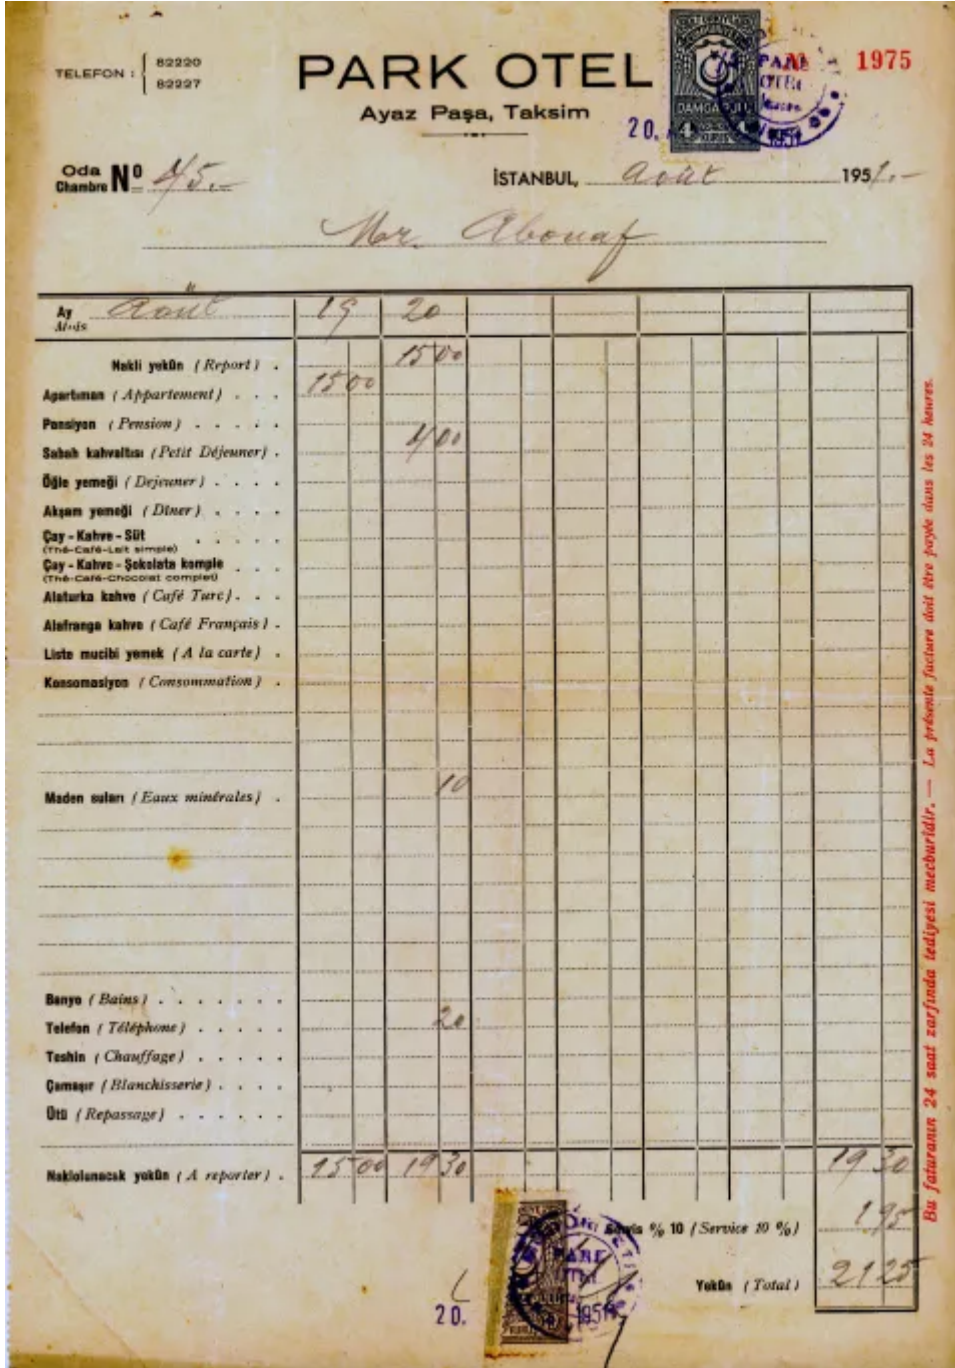 TELEFON : 82220
82227
PARK OTEL
Ayaz Paşa, Taksim
No 1975
DAMGA PULU
PARK
OTEL
20.
1951
Oda
Chambre No 45.-
İSTANBUL, Août 1951.-
Mr. Abouaf
Ay
Mois Août 19 20
Nakli yekûn (Report) . 1500
Apartıman (Appartement) . . . 1500
Pansiyon (Pension) . . . . .
Sabah kahvaltısı (Petit Déjeuner) . 400
Öğle yemeği (Dejeuner) . . . .
Akşam yemeği (Diner) . . . .
Çay - Kahve - Süt . . . . .
(Thé-Café-Lait simple)
Çay - Kahve - Şokolata komple . . .
(Thé-Café-Chocolat complet)
Alaturka kahve (Café Turc) . . .
Alafranga kahve (Café Français) .
Liste mucibi yemek (A la carte) .
Konsomasiyon (Consommation) .
Maden suları (Eaux minérales) . 10
Banyo (Bains) . . . . . . .
Telefon (Téléphone) . . . . . 20
Teshin (Chauffage) . . . . .
Çamaşır (Blanchisserie) . . . .
Ütü (Repassage) . . . . . .
Naklolunacak yekûn (A reporter) . 1500 1930 1930
Servis % 10 (Service 10 %) 195
Yekûn (Total) 2125
20. 1951
Bu faturanın 24 saat zarfında tediyesi mecburidir. — La présente facture doit être payée dans les 24 heures.